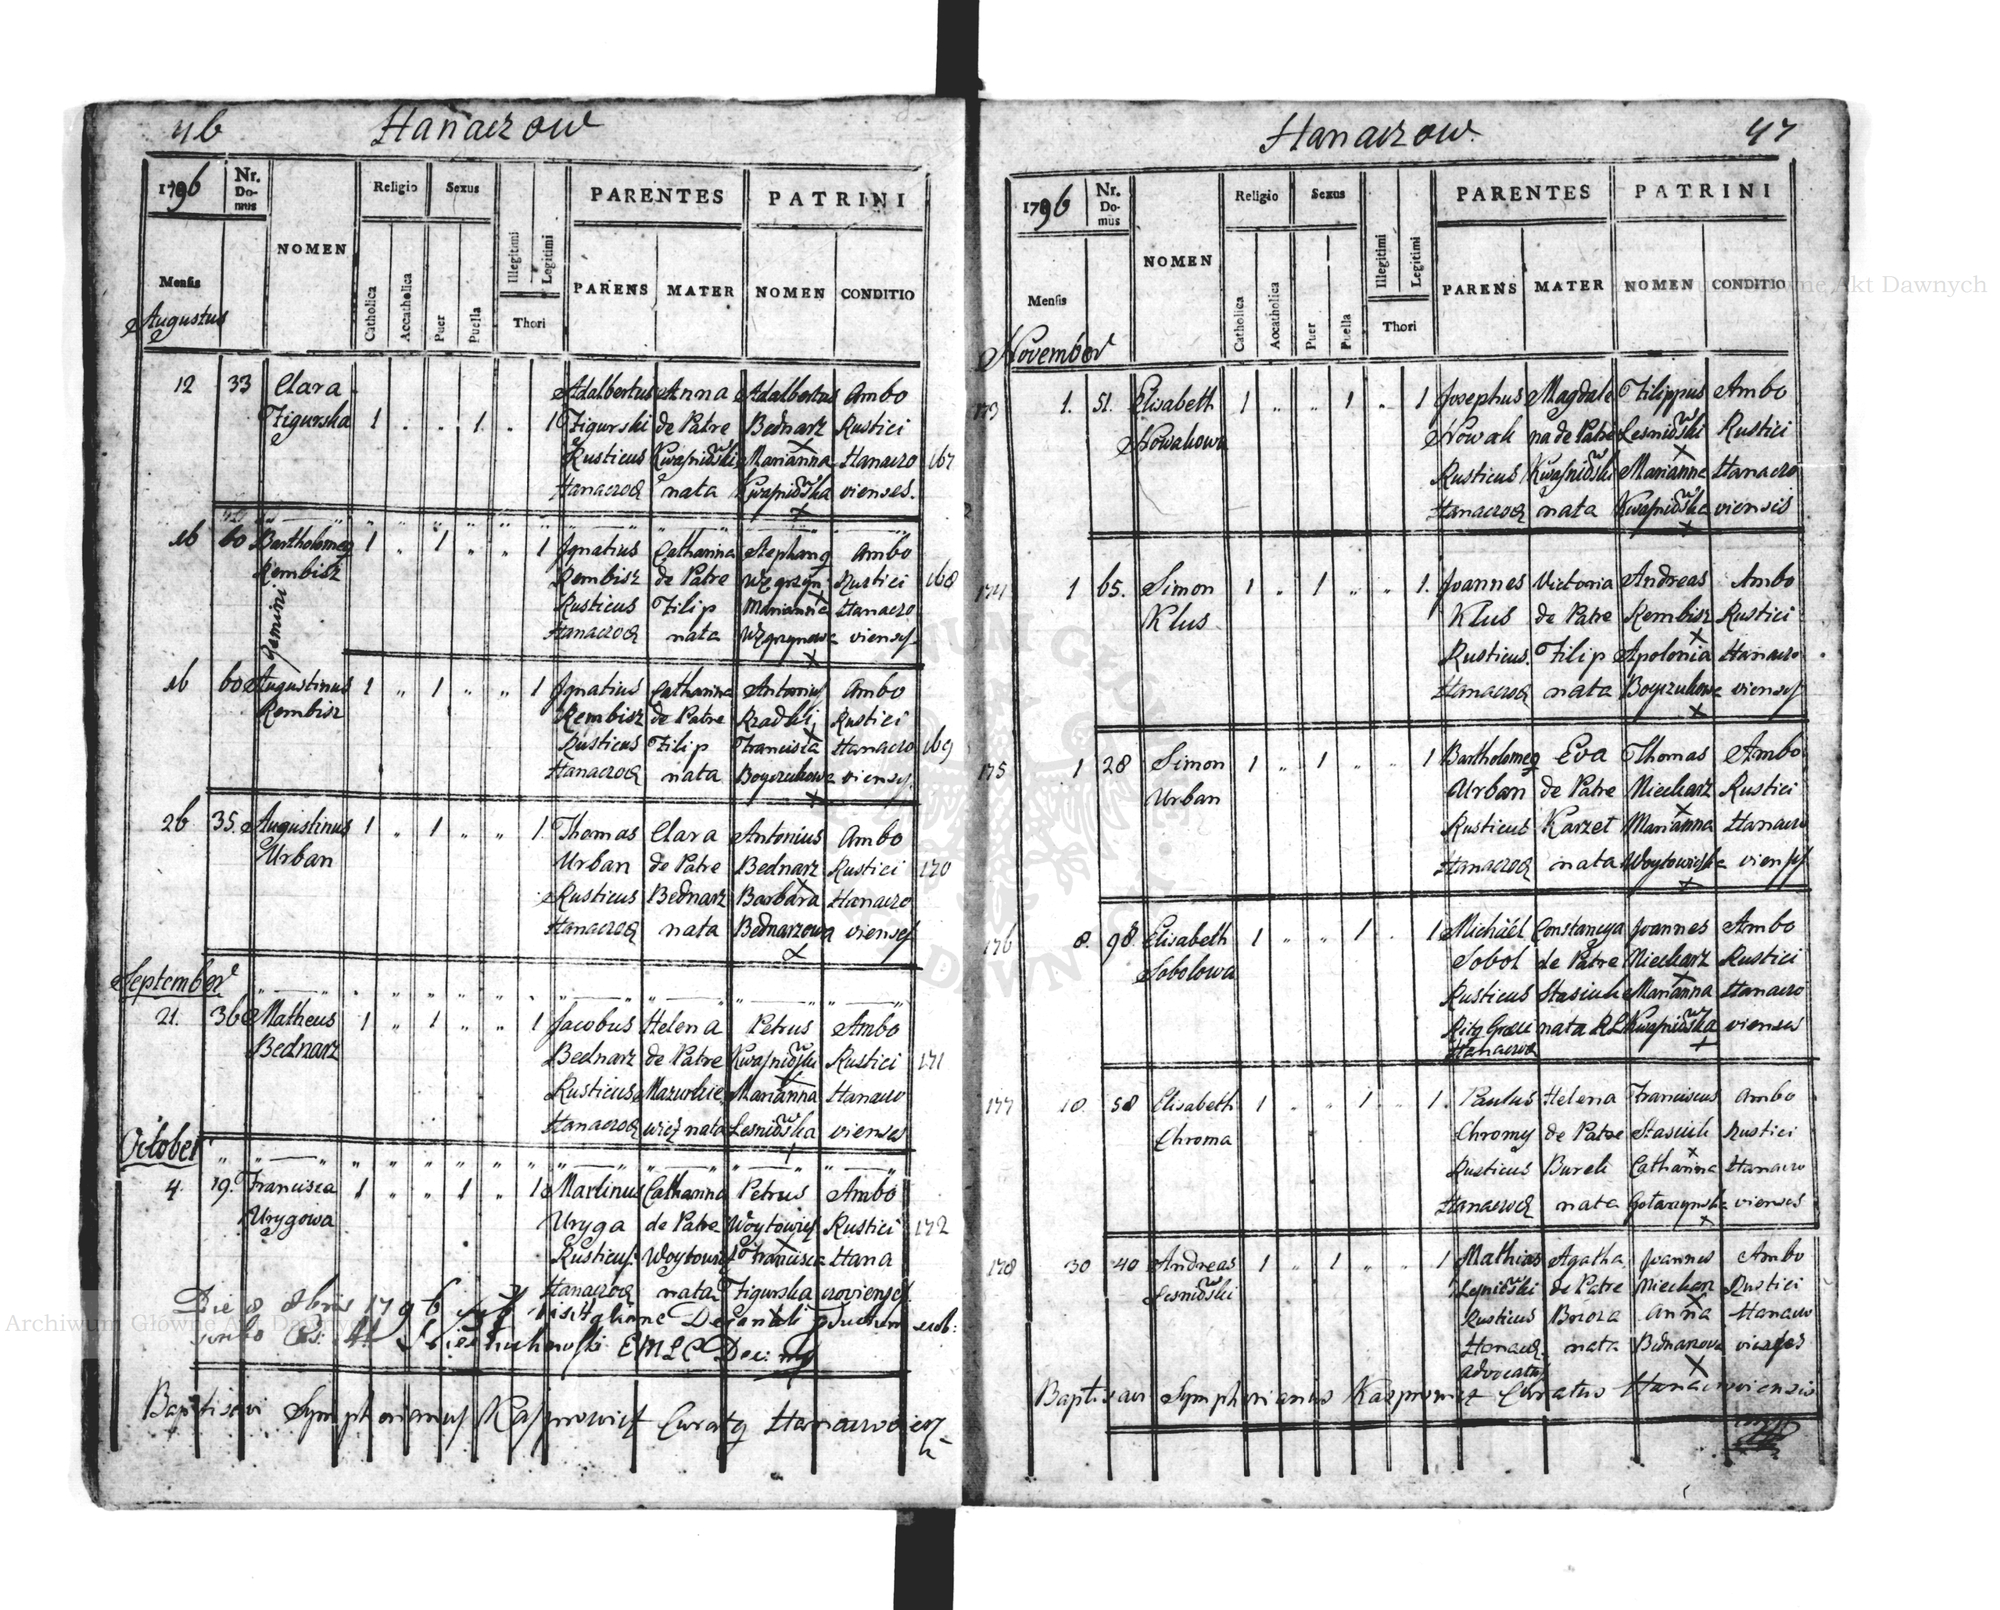 46 Hanaczow
1796 Nr. Domus NOMEN Religio Sexus Illegitimi Legitimi PARENTES PATRINI
Mensis Catholica Accatholica Puer Puella Thori PARENS MATER NOMEN CONDITIO
Augustus
12 33 Clara 1 " " 1 " 1 Adalbertus Anna Adalbertus Ambo
Figurska Figurski de Patre Bednarz Rustici
Rusticus Kwasniowski X Marianna Hanaczo 167
Hanaczov nata Kwasniowska vienses.
X
16 60 Bartholomeq 1 " 1 " " 1 Ignatius Catharina Stephanq Ambo
Rembisz Rembisz de Patre Wzgrzyn Rustici 168
Gemini Rusticus Filip Marianna Hanaczo
Hanaczov nata Wzgrzynowa vienses
X
16 60 Augustinus 1 " 1 " " 1 Ignatius Catharina Antonius Ambo
Rembisz Rembisz de Patre Rzadki Rustici
Rusticus Filip Francisca Hanaczo 169
Hanaczov nata Boyczukowa vienses
X
26 35. Augustinus 1 " 1 " " 1 Thomas Clara Antonius Ambo
Urban Urban de Patre Bednarz Rustici 170
Rusticus Bednarz X Barbara Hanaczo
Hanaczov nata Bednarzowa vienses
X
September
21. 36 Matheus 1 " 1 " " 1 Jacobus Helena Petrus Ambo
Bednarz Bednarz de Patre Kwasniowski Rustici 171
Rusticus Mazurkie Marianna Hanaczo
Hanaczov wicz nata Lesniowska vienses
October
4. 19. Francisca 1 " " 1 " 1 Martinus Catharina Petrus Ambo
Urygowa Uryga de Patre Woytowicz Rustici 172
Rusticus Woytowicz Francisca Hana
Hanaczov nata Figurska czovienses
Die 8 8bris 1796 Decanali
EMLC Dec: mp
Baptisavi Symphorianus Kasprowicz Curatq Hanaczovien
47 Hanaczow.
1796 Nr. Domus NOMEN Religio Sexus Illegitimi Legitimi PARENTES PATRINI
Mensis Catholica Accatholica Puer Puella Thori PARENS MATER NOMEN CONDITIO
November
173 1. 51. Elisabeth 1 " " 1 " 1 Josephus Magdale Filippus Ambo
Nowakowa Nowak na de Patre Lesniowski Rustici
Rusticus Kwasniowski X Marianna Hanaczo
Hanaczov nata Kwasniowska viensis
X
174 1 65. Simon 1 " 1 " " 1. Joannes Victoria Andreas Ambo
Klus Klus de Patre Rembisz Rustici
Rusticus. Filip X Apolonia Hanaczo
Hanaczov nata Boyczukowa vienses
X
175 1 28 Simon 1 " 1 " " 1 Bartholomeq Eva Thomas Ambo
Urban Urban de Patre Niechaz Rustici
Rusticus Karzet X Marianna Hanaczo
Hanaczov nata Woytowicka vienses
X
176 8. 98. Elisabeth 1 " " 1 . 1 Michaël Constancya Joannes Ambo
Sobolowa Sobol de Patre Niecharz Rustici
Rusticus Stasiuk X Marianna Hanaczo
Ritq Graeci nata RL Kwasniowska vienses
Hanaczov X
177 10. 58 Elisabeth 1 " " 1 " 1. Paulus Helena Franciscus Ambo
Chroma Chromy de Patre Stasiuk Rustici
Rusticus Burek X Catharina Hanaczo
Hanaczov nata Gotarzynska vienses
X
178 30 40 Andreas 1 " 1 " " 1 Mathias Agatha Joannes Ambo
Lesniowski Lesniowski de Patre Niecharz Rustici
Rusticus Brzoza Anna Hanaczo
Hanacz. nata Bednarzowa vienses
advocatus X
Baptisavi Symphorianus Kasprowicz Curatus Hanaczoviensis
Archiwum Główne Akt Dawnych